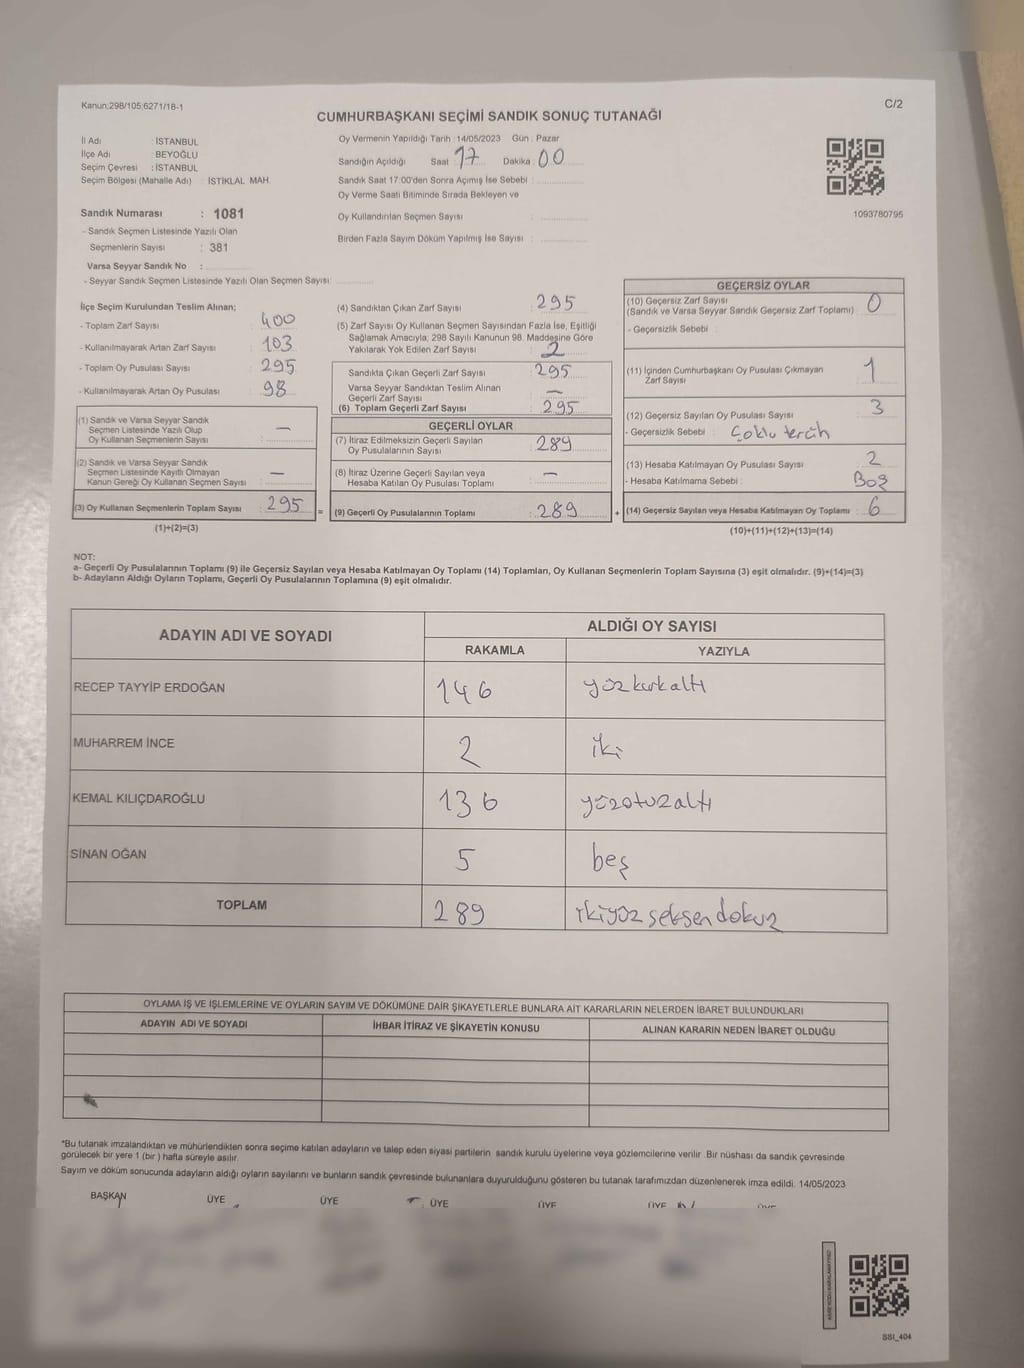 Kanun:298/105;6271/18-1
C/2
CUMHURBAŞKANI SEÇİMİ SANDIK SONUÇ TUTANAĞI
İl Adı : İSTANBUL
İlçe Adı : BEYOĞLU
Seçim Çevresi : İSTANBUL
Seçim Bölgesi (Mahalle Adı) : İSTİKLAL MAH.
Oy Vermenin Yapıldığı Tarih :14/05/2023 Gün : Pazar
Sandığın Açıldığı Saat 17 Dakika : 00
Sandık Saat 17:00'den Sonra Açımış İse Sebebi :
Oy Verme Saati Bitiminde Sırada Bekleyen ve
Oy Kullandırılan Seçmen Sayısı :
Birden Fazla Sayım Döküm Yapılmış İse Sayısı :
1093780795
Sandık Numarası : 1081
- Sandık Seçmen Listesinde Yazılı Olan
Seçmenlerin Sayısı : 381
Varsa Seyyar Sandık No :
- Seyyar Sandık Seçmen Listesinde Yazılı Olan Seçmen Sayısı:
İlçe Seçim Kurulundan Teslim Alınan;
- Toplam Zarf Sayısı : 400
- Kullanılmayarak Artan Zarf Sayısı : 103
- Toplam Oy Pusulası Sayısı : 295
- Kullanılmayarak Artan Oy Pusulası : 98
(1) Sandık ve Varsa Seyyar Sandık
Seçmen Listesinde Yazılı Olup
Oy Kullanan Seçmenlerin Sayısı : —
(2) Sandık ve Varsa Seyyar Sandık
Seçmen Listesinde Kayıtlı Olmayan
Kanun Gereği Oy Kullanan Seçmen Sayısı : —
(3) Oy Kullanan Seçmenlerin Toplam Sayısı : 295
(1)+(2)=(3)
(4) Sandıktan Çıkan Zarf Sayısı : 295
(5) Zarf Sayısı Oy Kullanan Seçmen Sayısından Fazla İse, Eşitliği
Sağlamak Amacıyla; 298 Sayılı Kanunun 98. Maddesine Göre
Yakılarak Yok Edilen Zarf Sayısı : 2
Sandıkta Çıkan Geçerli Zarf Sayısı : 295
Varsa Seyyar Sandıktan Teslim Alınan
Geçerli Zarf Sayısı : —
(6) Toplam Geçerli Zarf Sayısı : 295
GEÇERLİ OYLAR
(7) İtiraz Edilmeksizin Geçerli Sayılan
Oy Pusulalarının Sayısı : 289
(8) İtiraz Üzerine Geçerli Sayılan veya
Hesaba Katılan Oy Pusulası Toplamı : —
= (9) Geçerli Oy Pusulalarının Toplamı : 289
GEÇERSİZ OYLAR
(10) Geçersiz Zarf Sayısı
(Sandık ve Varsa Seyyar Sandık Geçersiz Zarf Toplamı) : 0
- Geçersizlik Sebebi :
(11) İçinden Cumhurbaşkanı Oy Pusulası Çıkmayan
Zarf Sayısı : 1
(12) Geçersiz Sayılan Oy Pusulası Sayısı : 3
- Geçersizlik Sebebi : Çoklu tercih
(13) Hesaba Katılmayan Oy Pusulası Sayısı : 2
- Hesaba Katılmama Sebebi : Boş
+ (14) Geçersiz Sayılan veya Hesaba Katılmayan Oy Toplamı : 6
(10)+(11)+(12)+(13)=(14)
NOT:
a- Geçerli Oy Pusulalarının Toplamı (9) ile Geçersiz Sayılan veya Hesaba Katılmayan Oy Toplamı (14) Toplamları, Oy Kullanan Seçmenlerin Toplam Sayısına (3) eşit olmalıdır. (9)+(14)=(3)
b- Adayların Aldığı Oyların Toplamı, Geçerli Oy Pusulalarının Toplamına (9) eşit olmalıdır.
ADAYIN ADI VE SOYADI
ALDIĞI OY SAYISI
RAKAMLA YAZIYLA
RECEP TAYYİP ERDOĞAN 146 yüzkırkaltı
MUHARREM İNCE 2 iki
KEMAL KILIÇDAROĞLU 136 yüzotuzaltı
SİNAN OĞAN 5 beş
TOPLAM 289 ikiyüz seksen dokuz
OYLAMA İŞ VE İŞLEMLERİNE VE OYLARIN SAYIM VE DÖKÜMÜNE DAİR ŞİKAYETLERLE BUNLARA AİT KARARLARIN NELERDEN İBARET BULUNDUKLARI
ADAYIN ADI VE SOYADI İHBAR İTİRAZ VE ŞİKAYETİN KONUSU ALINAN KARARIN NEDEN İBARET OLDUĞU
*Bu tutanak imzalandıktan ve mühürlendikten sonra seçime katılan adayların ve talep eden siyasi partilerin sandık kurulu üyelerine veya gözlemcilerine verilir. Bir nüshası da sandık çevresinde
görülecek bir yere 1 (bir ) hafta süreyle asılır.
Sayım ve döküm sonucunda adayların aldığı oyların sayılarını ve bunların sandık çevresinde bulunanlara duyurulduğunu gösteren bu tutanak tarafımızdan düzenlenerek imza edildi. 14/05/2023
BAŞKAN ÜYE ÜYE ÜYE ÜYE ÜYE ÜYE
SSI_404